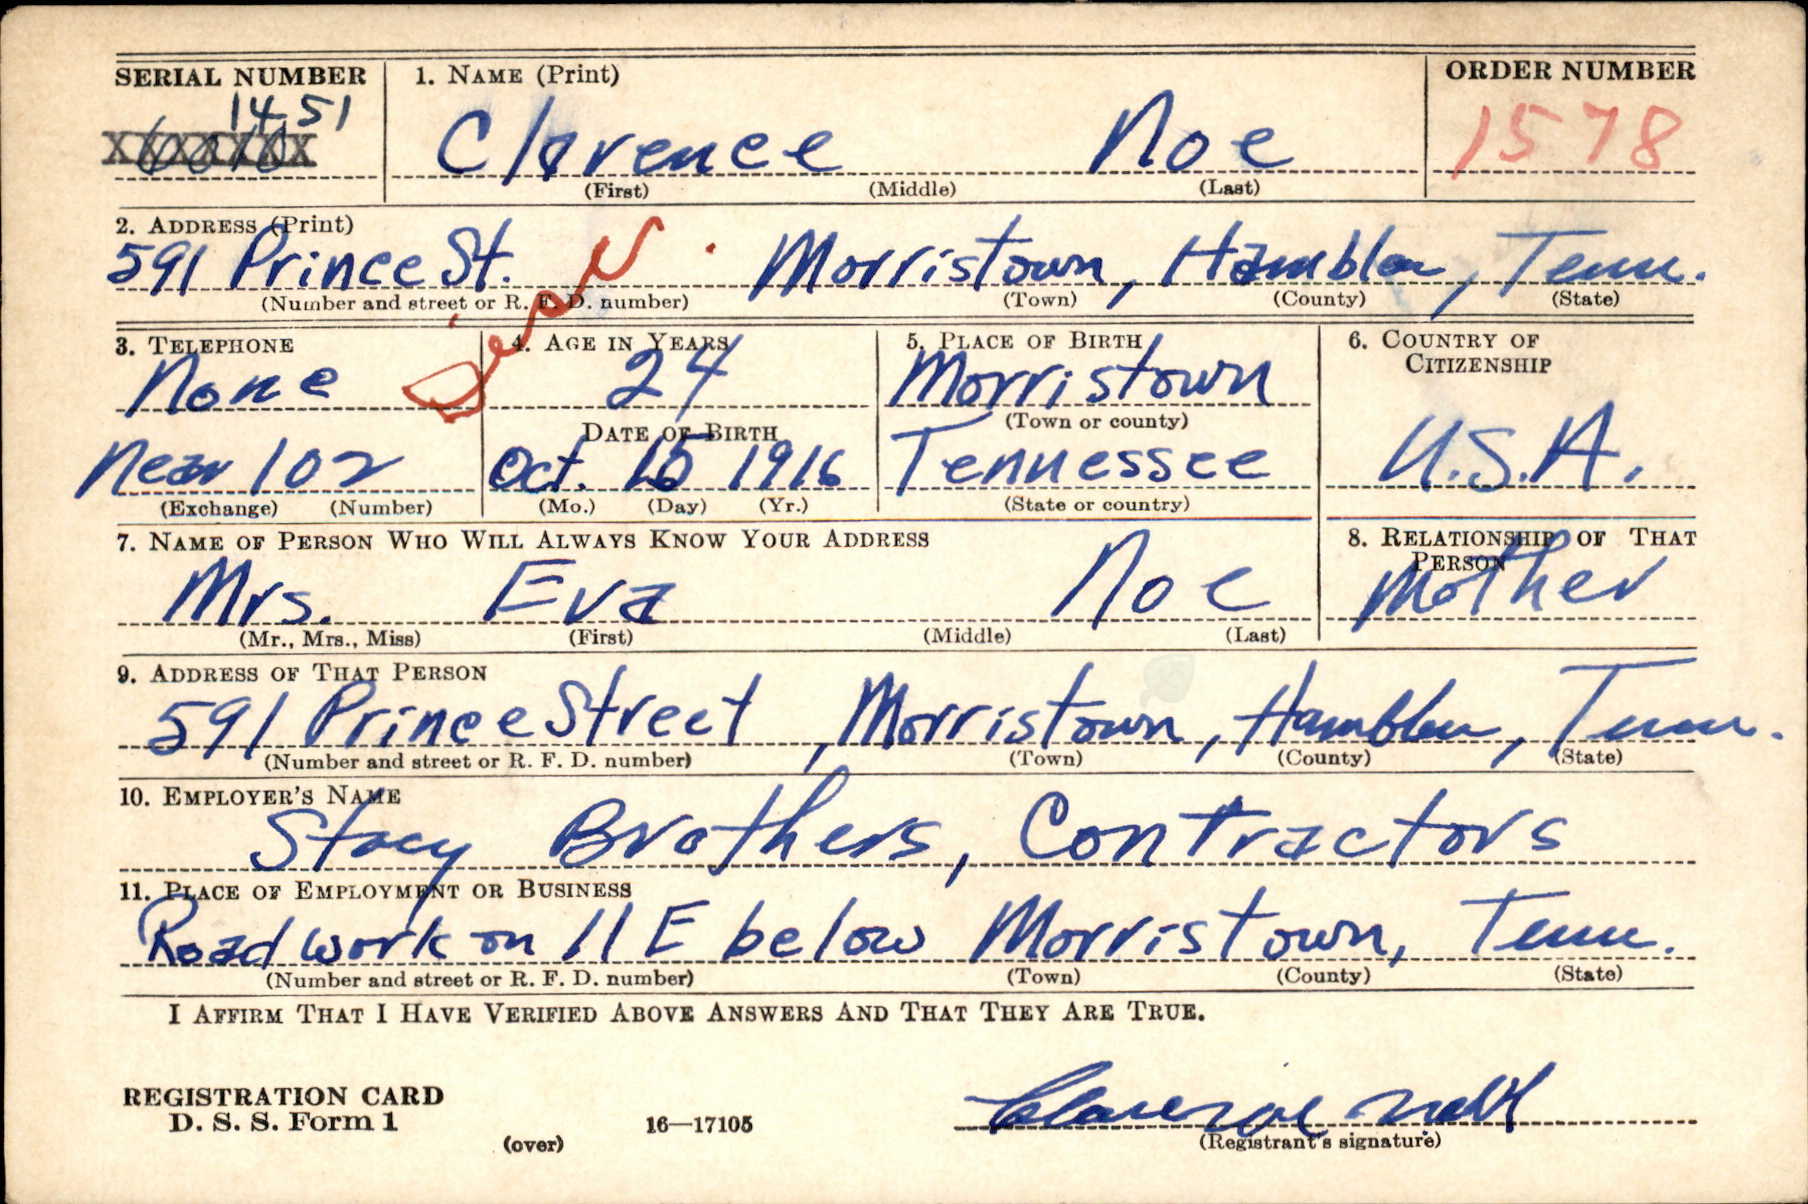 SERIAL NUMBER
1. NAME (Print)
ORDER NUMBER
1451
XXXXXXX
Clarence Noe
1578
(First) (Middle) (Last)
2. ADDRESS (Print)
591 Prince St. Morristown, Hamblen, Tenn.
(Number and street or R. F. D. number) (Town) (County) (State)
Dead
3. TELEPHONE
4. AGE IN YEARS
5. PLACE OF BIRTH
6. COUNTRY OF CITIZENSHIP
None
24
Morristown
(Town or county)
DATE OF BIRTH
Near 102
Oct. 15 1916
Tennessee
U.S.A.
(Exchange) (Number)
(Mo.) (Day) (Yr.)
(State or country)
7. NAME OF PERSON WHO WILL ALWAYS KNOW YOUR ADDRESS
8. RELATIONSHIP OF THAT PERSON
Mrs. Eva Noe
Mother
(Mr., Mrs., Miss) (First) (Middle) (Last)
9. ADDRESS OF THAT PERSON
591 Prince Street, Morristown, Hamblen, Tenn.
(Number and street or R. F. D. number) (Town) (County) (State)
10. EMPLOYER'S NAME
Stacy Brothers, Contractors
11. PLACE OF EMPLOYMENT OR BUSINESS
Road work on 11 E below Morristown, Tenn.
(Number and street or R. F. D. number) (Town) (County) (State)
I AFFIRM THAT I HAVE VERIFIED ABOVE ANSWERS AND THAT THEY ARE TRUE.
REGISTRATION CARD
D. S. S. Form 1
(over)
16—17105
(Registrant's signature)